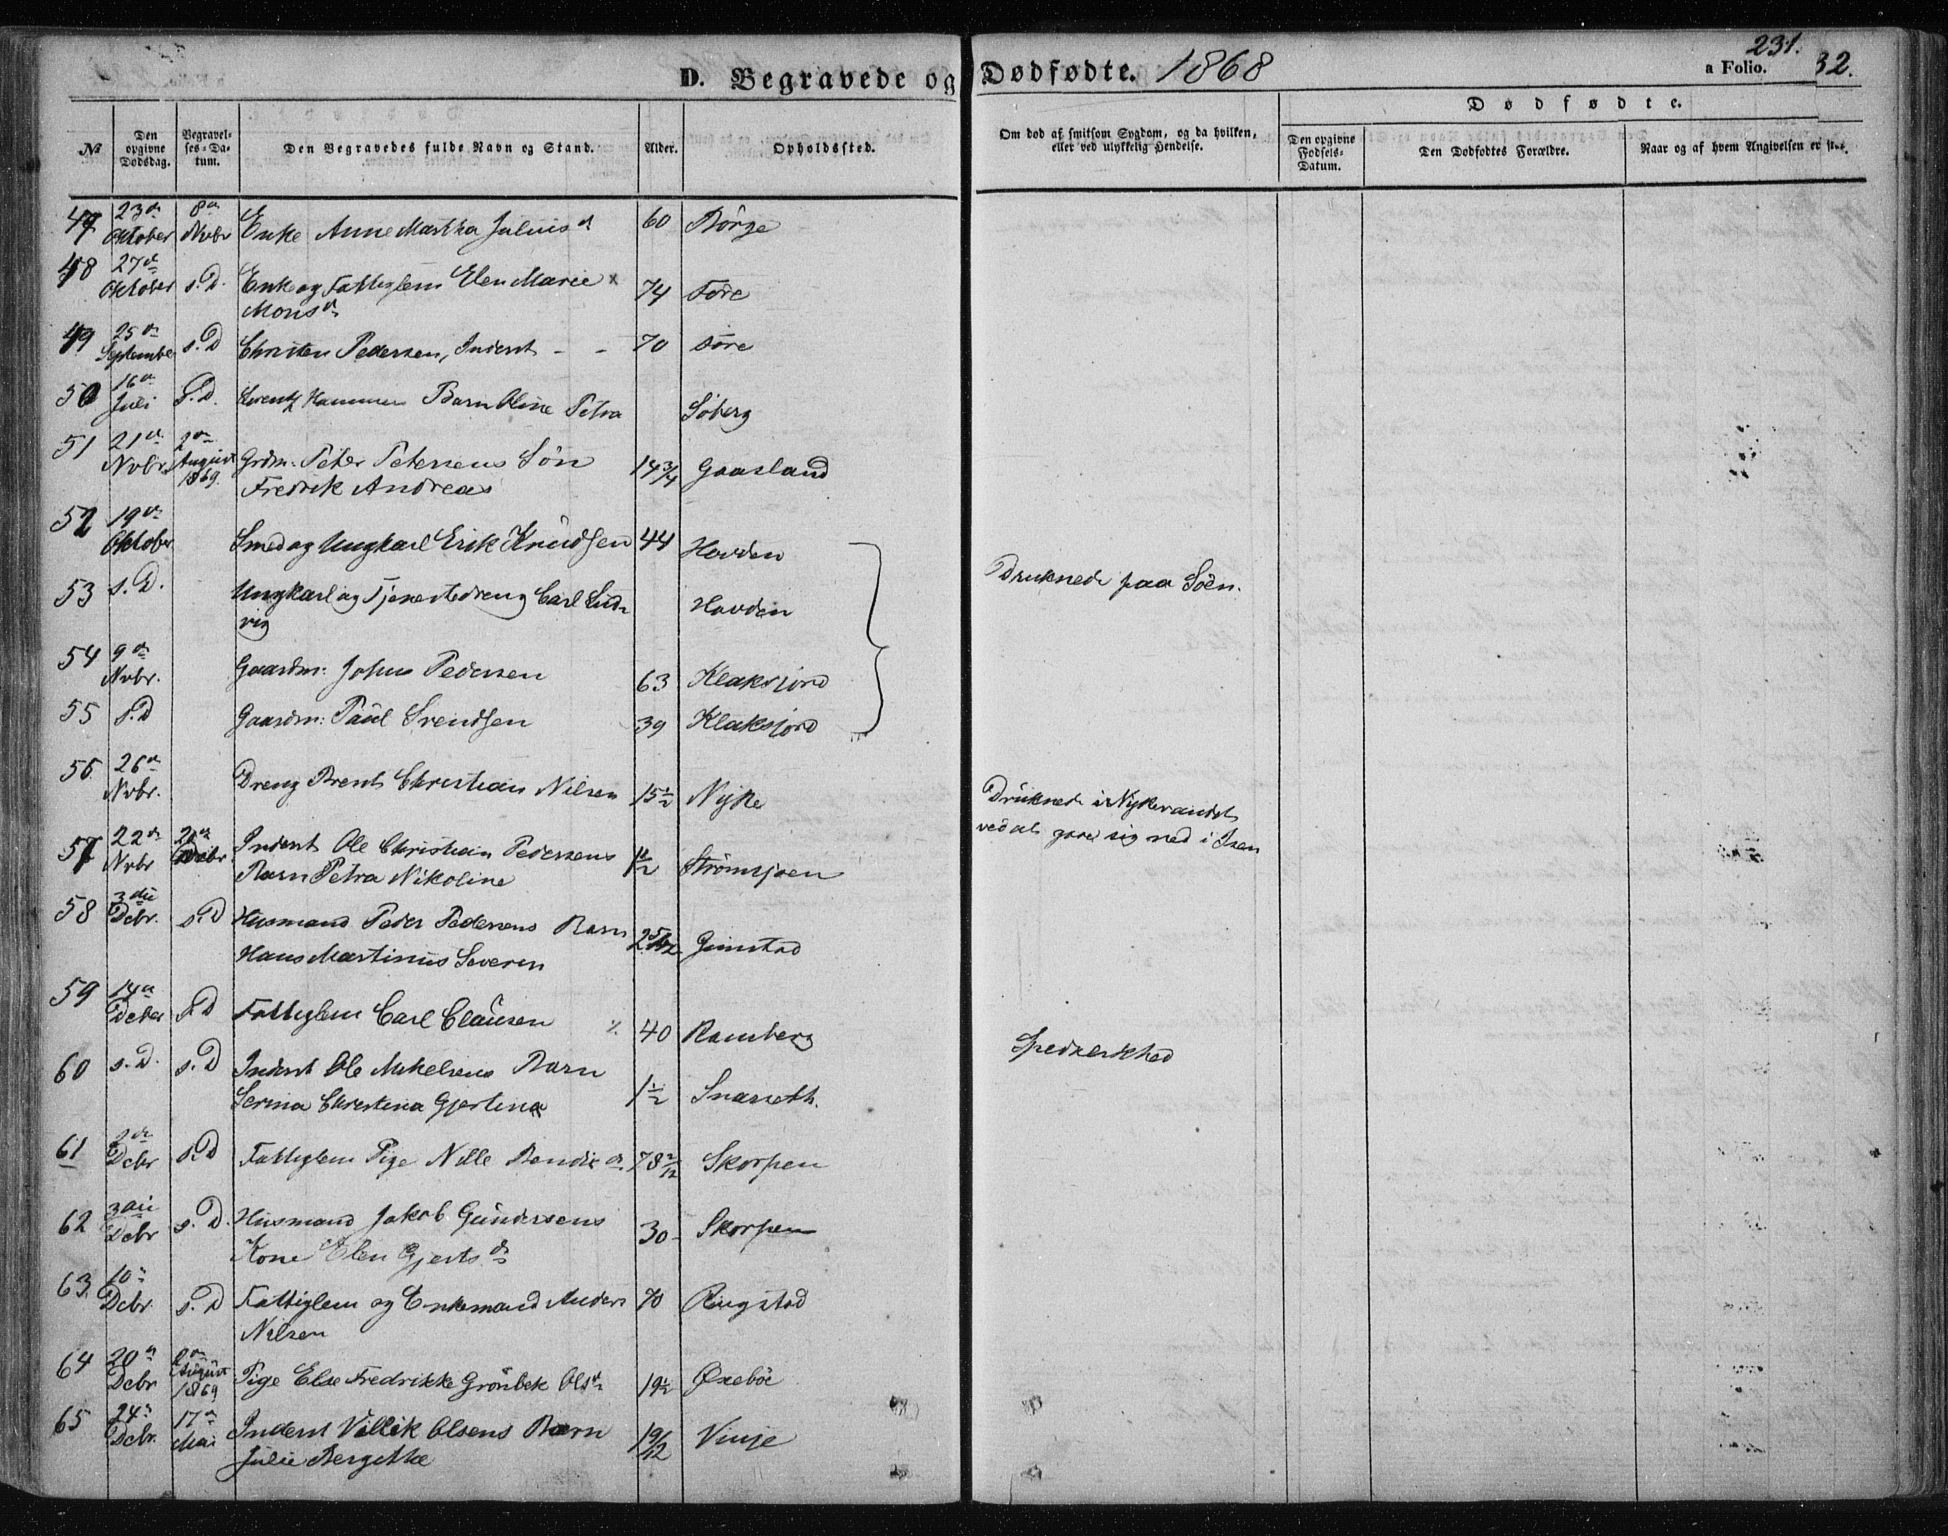 231.
D. Begravede og Dødfødte. 1868 a Folio. 32.
Dødfødte.
№ Den opgivne Dødsdag. Begravelses-Datum. Den Begravedes fulde Navn og Stand. Alder. Opholdssted. Om død af smitsom Sygdom, og da hvilken, eller ved ulykkelig Hendelse. Den opgivne Fødsels-Datum. Den Dødfødtes Forældre. Naar og af hvem Angivelsen er
47 23de Oktober 8de Nvbr Enke Anne Martha Julius d 60 Børge
48 27de Oktober s.D. Enke og Fattiglem Elen Marie x
Mons d 74 Føre
49 25de September s.D Christen Pedersen, Inderst - - 70 Føre
50 16de Juli s.D. Hammer Barn Oline Petra Søberg
51 21de Nvbr. 2den August 1869. Grdm. Peter Petersens Søn
Fredrik Andreas 14 3/4 Gaasland
52 19de Oktober Smed og Ungkarl Erik Knudsen 44 Hovden
Druknede paa Søen.
53 s.D. Ungkarl og Tjenestedreng Carl Lud-
vig Hovden
54 9de Nvbr. Gaardm: Johns Pedersen 63 Klaksjord
55 s.D Gaardm: Paul Svendsen 39 Klaksjord
56 26de Nvbr. Dreng Brent Christian Nilsen 15½ Nyke Druknede i Nykevandet
ved at gaae sig ned i Isen
57 22de Nvbr Debr Inderst Ole Christian Pedersens
Barn Petra Nikoline ½ Strømsjoen
58 3die Debr. s.D Husmand Peder Pedersens Barn
Hans Martinus Severin Gimstad
59 14de Deber s.D Fattiglem Carl Clausen 40 Ramberg
Spedalskhed
60 s.D. s.D Inderst Ole Mikelsens Barn
Serina Christina Gjertina 1½ Snarseth.
61 2de Debr s.D Fattiglem Pige Nille Bendix d. 78 2/12 Skorpen
62 3die Debr s.D Husmand Jakob Gundersens
Kone Elen Gjerts d 30- Skorpen
63. 10de Debr. s.D Fattiglem og Enkemand Anders
Nilsen 70 Ringstad
64 20de Debr 2den August 1869 Pige Else Fredrikke Grönbek Ols d 19½ Øxebøe
65 24de Debr. 17de Mai Inderst Villik Olsens Barn
Julie Bergitthe 1 9/12 Vinje